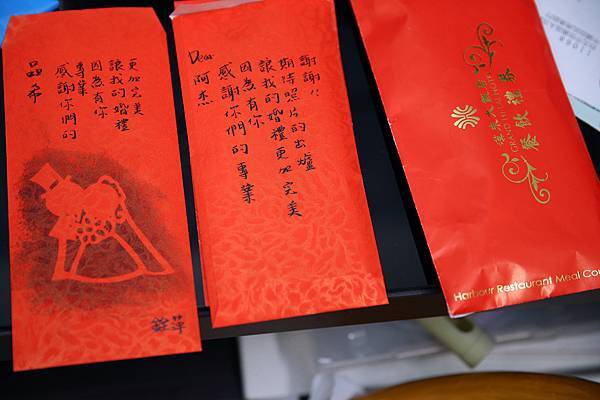 品希
感謝你們的
專業
因為有你
讓我的婚禮
更加完美
Dear 阿杰
感謝你們的專業
因為有你
讓我的婚禮更加完美
期待照片的出爐
謝謝!!
漢來大飯店
GRAND HI LAI HOTEL
餐飲禮券
Harbour Restaurant Meal Cou